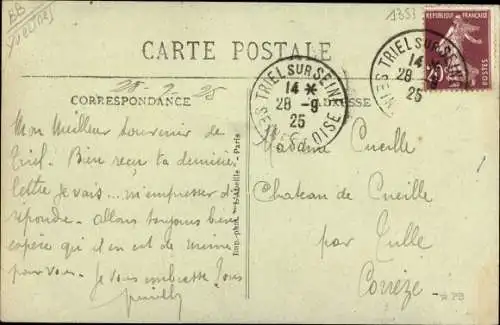 BB
(YVELINES)
1353
REPUBLIQUE FRANÇAISE
CARTE POSTALE
TRIEL SUR SEINE
14 *
28 -9
25
SEINE
TRIEL SUR SEINE
14 *
28 -9
25
SEINE ET OISE
CORRESPONDANCE
ADRESSE
Mon Meilleur souvenir de
Triel. Bien reçu ta dernière
lettre je vais... m'empresser de
répondre. Allons toujours bien
espère qu'il en est de même
pour vous. Je vous embrasse Tous
Madame Cueille
Chateau de Cueille
par Tulle
Corrèze
Imp.-phot. Paris